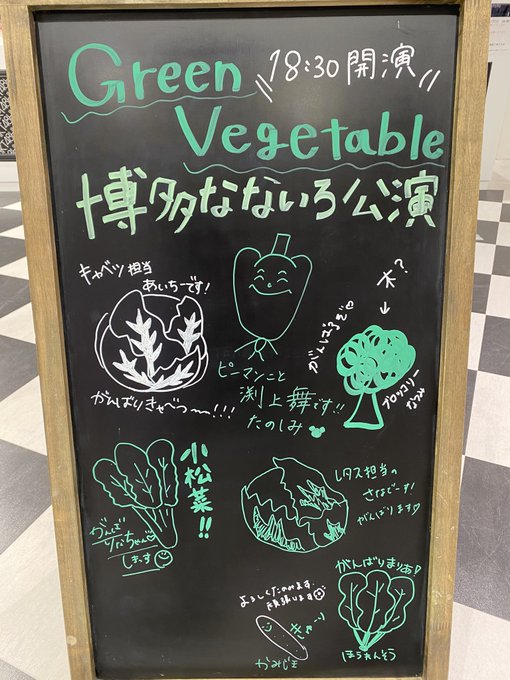 Green
18:30開演
Vegetable
博多なないろ公演
キャベツ担当
あいちーです!
がんばりきゃべつ〜〜!!!
ピーマンこと
渕上舞です!!
たのしみ
木?
がんばるぞ
ブロッコリー
なつみ
小松菜!!
がんば
りなちゃん♡
しまっす
レタス担当の
さなでーす!
がんばります♡
よろしくたのみます
頑張します
きゅーり
かみじま
がんばりまりあ!
ほうれんそう